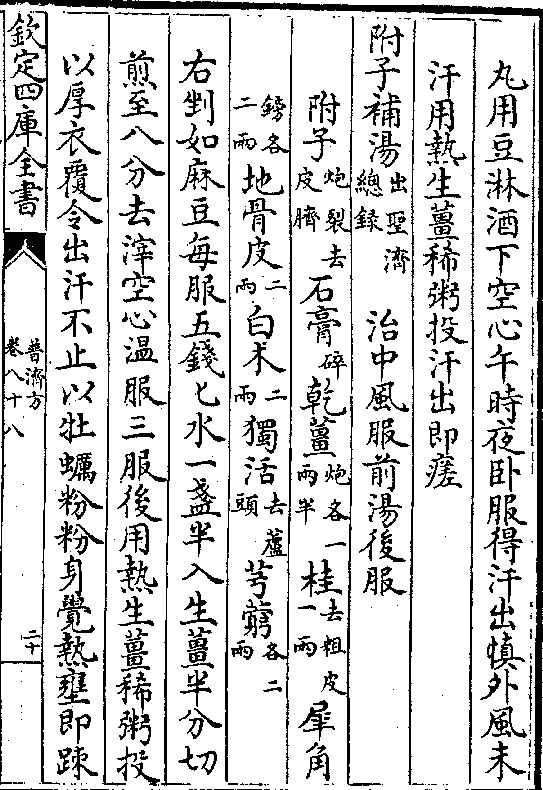 丸用豆淋酒下空心午時夜卧服得汗出慎外風未
汗用熱生薑稀粥投汗出即瘥
附子補湯出聖濟總録 治中風服前湯後服
附子炮裂去皮臍 石膏碎 乾薑炮各一兩半 桂去粗皮一兩 犀角
鎊各二兩 地骨皮二兩 白术二兩 獨活去蘆頭 芎藭各二兩
右剉如麻豆每服五錢匕水一盞半入生薑半分切
煎至八分去滓空心温服三服後用熱生薑稀粥投
以厚衣覆令出汗不止以牡蠣粉粉身覺熱壅即踈
欽定四庫全書
普濟方
卷八十八
二十